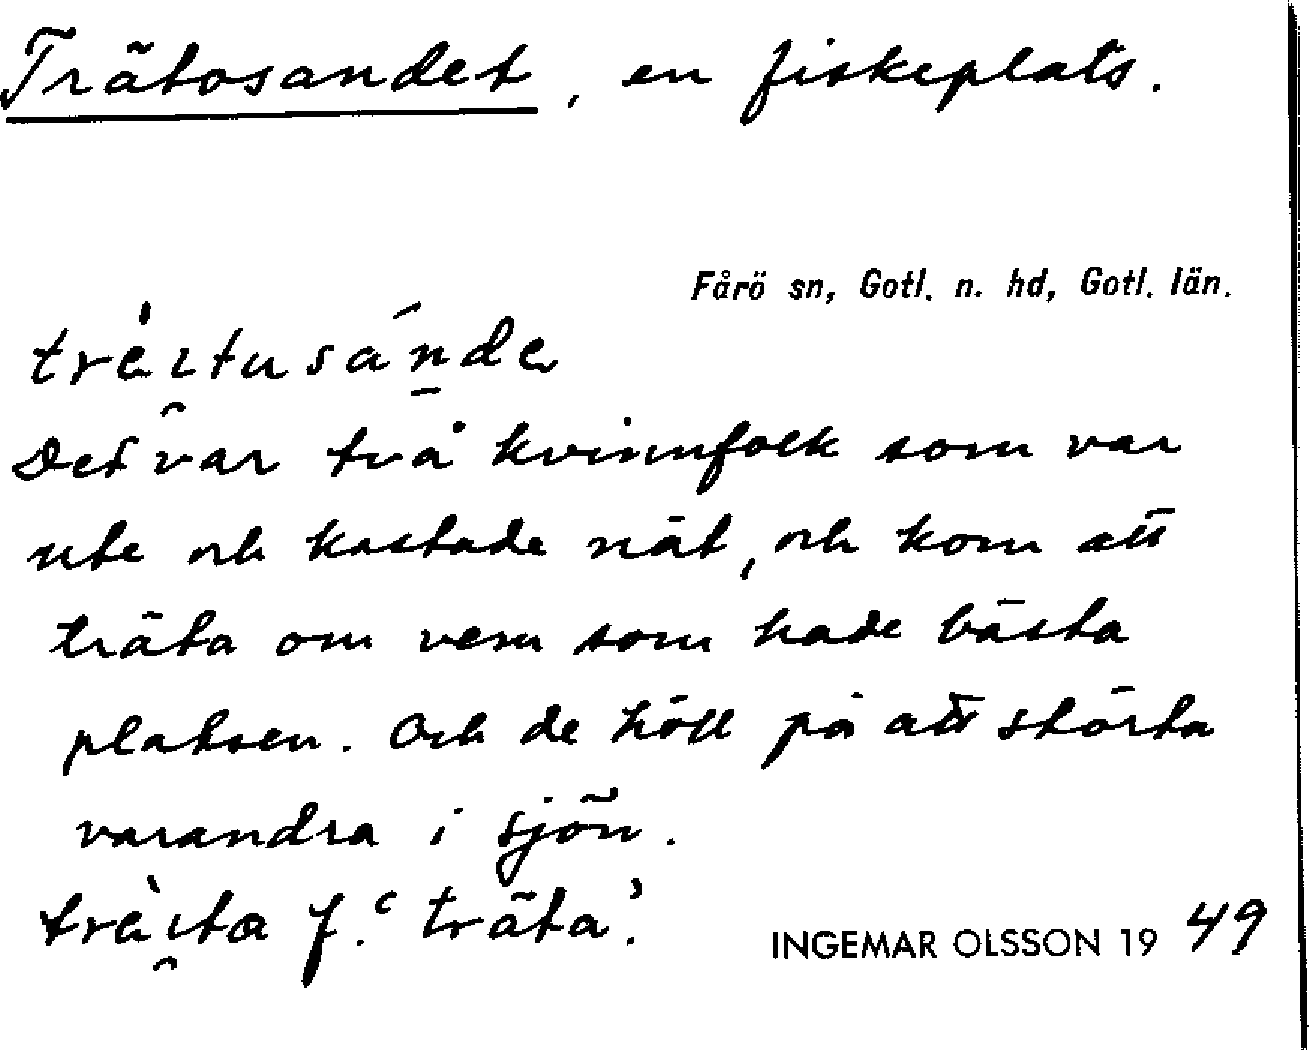 Trätosandet, en fiskeplats.
Fårö sn, Gotl. n. hd, Gotl. län.
Det var två kvinnfolk som var
ute och kastade nät, och kom att
träta om vem som hade bästa
platsen. Och de höll på att störta
varandra i sjön.
f. ‘träta’.
INGEMAR OLSSON 1949